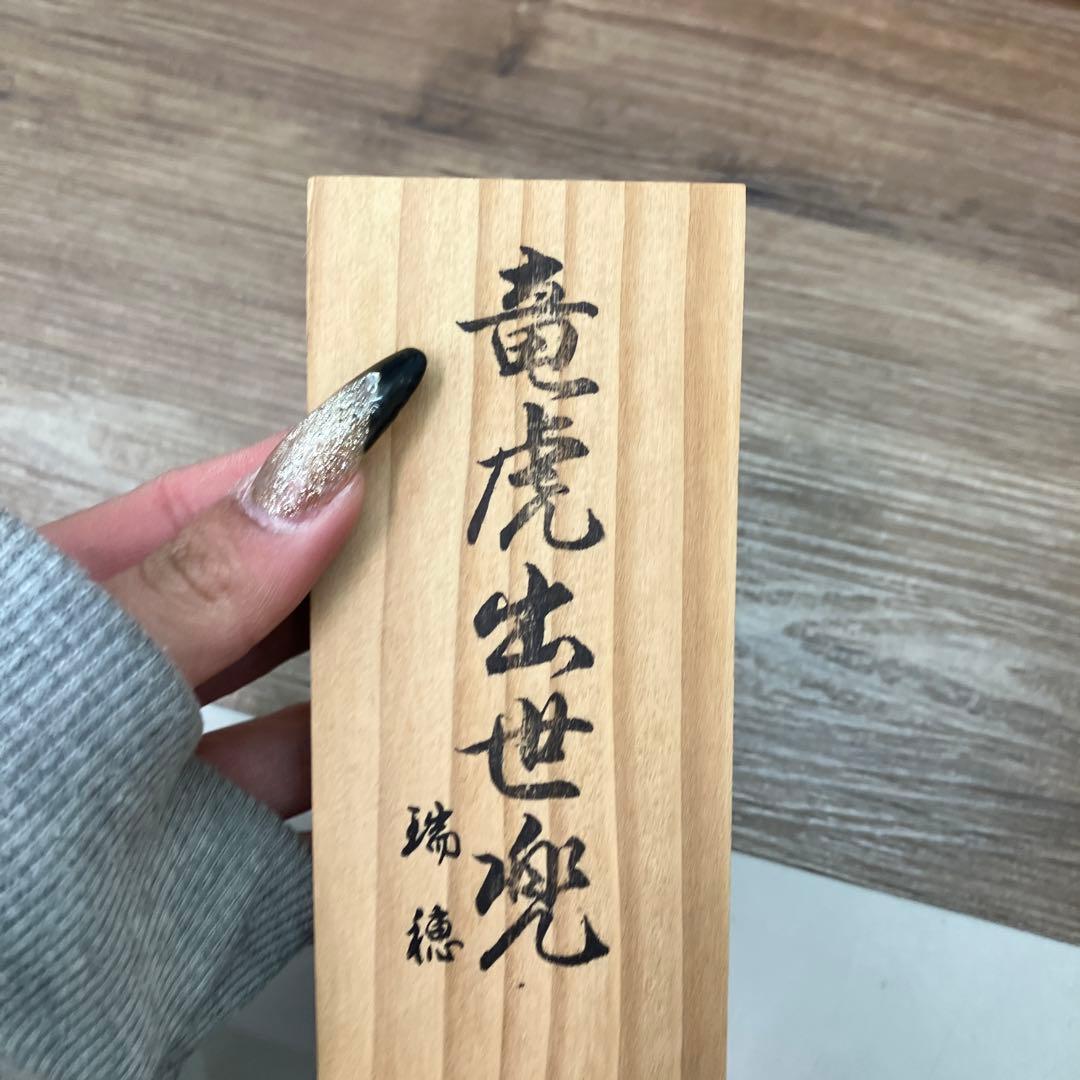 竜虎出世兜
瑞穂